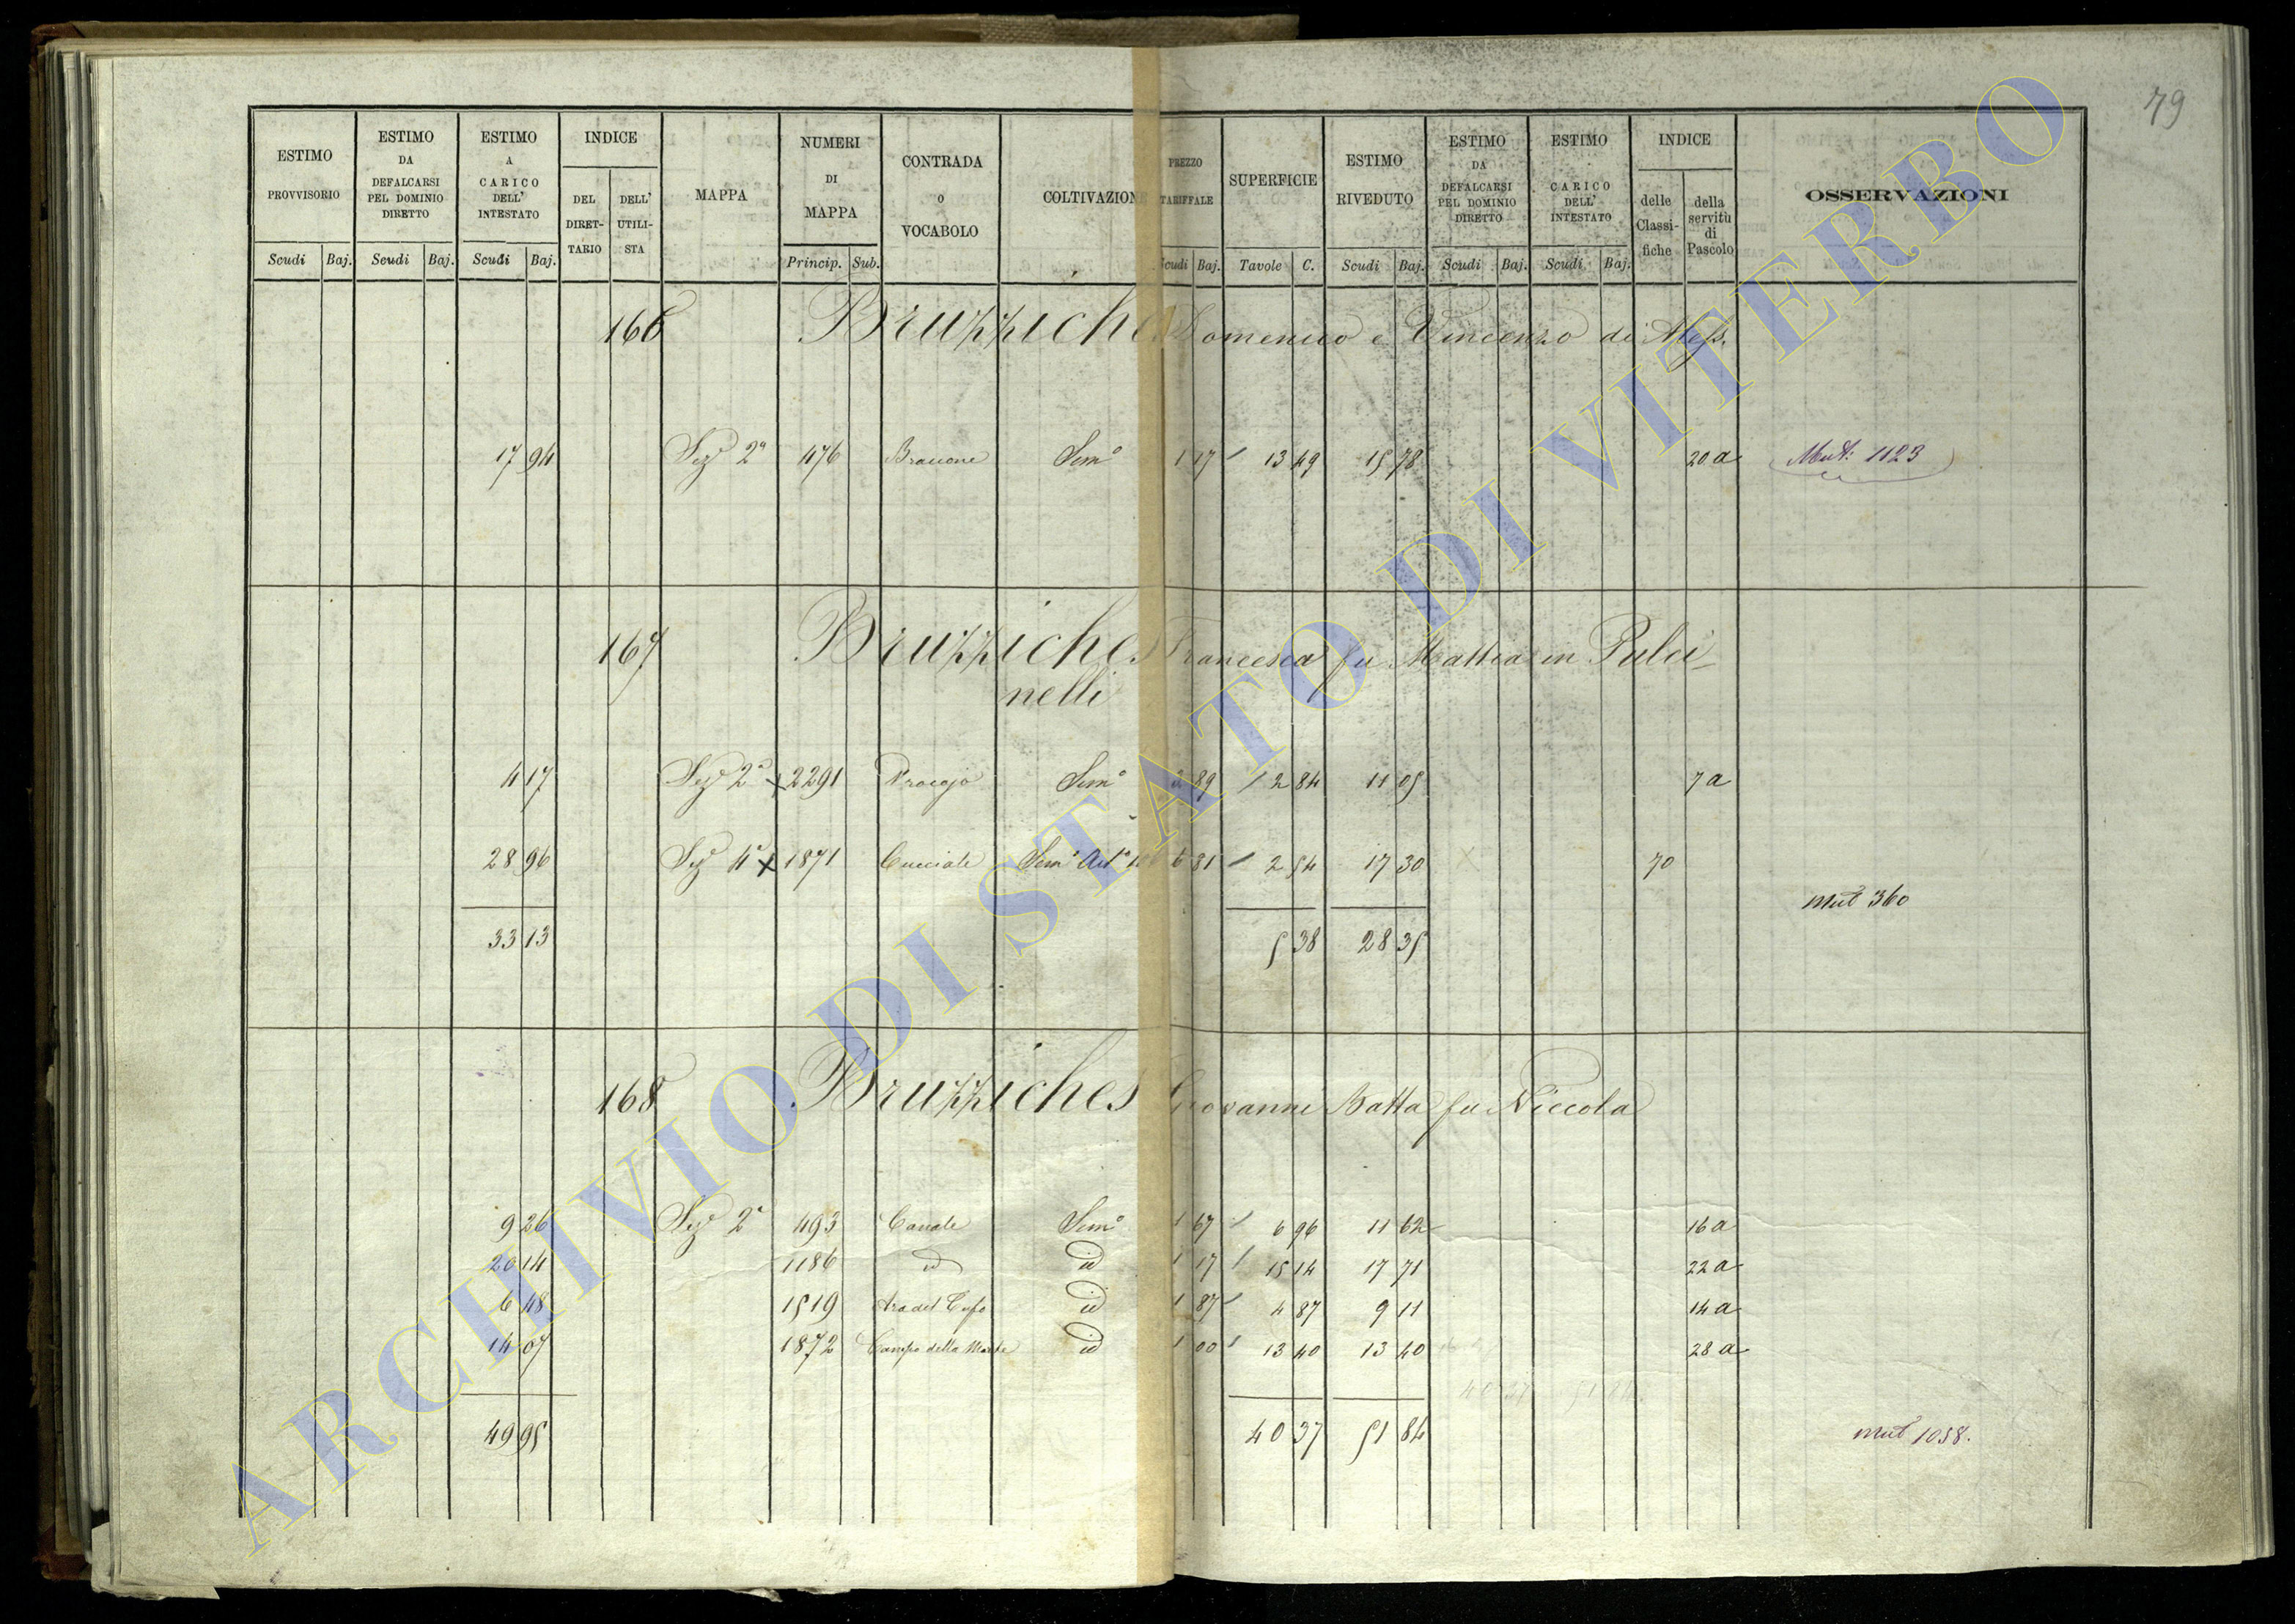 79
ESTIMO PROVVISORIO
ESTIMO DA DEFALCARSI PEL DOMINIO DIRETTO
ESTIMO A CARICO DELL' INTESTATO
INDICE
DEL DIRET-TARIO
DELL' UTILI-STA
MAPPA
NUMERI DI MAPPA
CONTRADA O VOCABOLO
COLTIVAZIONE
PREZZO TARIFFALE
SUPERFICIE
ESTIMO RIVEDUTO
ESTIMO DA DEFALCARSI PEL DOMINIO DIRETTO
ESTIMO CARICO DELL' INTESTATO
INDICE
delle Classi-fiche
della servitù di Pascolo
OSSERVAZIONI
Scudi Baj. Scudi Baj. Scudi Baj. Princip. Sub. Scudi Baj. Tavole C. Scudi Baj. Scudi Baj. Scudi Baj.
166 Bruzziches Domenico e Vincenzo di Aless.
17 94 Sez.e 2a 476 Sem.o 1 17 13 49 15 78 20 a Mut: 1123
167 Bruzziches Francesca fu Mattia in Pulci-
nelli
4 17 Sez.e 2a x 2291 Procojo Sem.o 3 89 2 84 11 05 7 a
28 96 Sez.e 4a x 1871 Cucciale Sem.o 6 81 2 54 17 30 70
mut 360
33 13 5 38 28 35
168 Bruzziches Giovanni Batta fu Niccola
9 26 Sez.e 2a 493 Canale Sem.o 1 67 6 96 11 62 16 a
20 14 1186 id id 1 17 15 14 17 71 22 a
6 48 1519 Ara del Tufo id 1 87 4 87 9 11 14 a
14 07 1872 Campo della Morte id 1 00 13 40 13 40 28 a
40 37 51 84
49 95 40 37 51 84 mut 1058.
ARCHIVIO DI STATO DI VITERBO